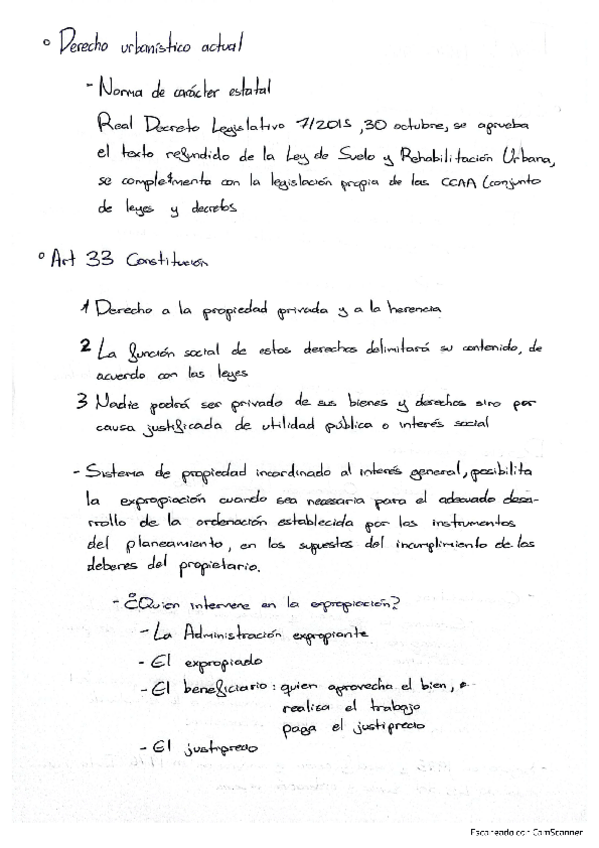 ° Derecho urbanístico actual
- Norma de carácter estatal
Real Decreto Legislativo 7/2015, 30 octubre, se aprueba
el texto refundido de la Ley de Suelo y Rehabilitación Urbana,
se complementa con la legislación propia de las CCAA (conjunto
de leyes y decretos
° Art 33 Constitución
1 Derecho a la propiedad privada y a la herencia
2 La función social de estos derechos delimitará su contenido, de
acuerdo con las leyes
3 Nadie podrá ser privado de sus bienes y derechos sino por
causa justificada de utilidad pública o interés social
- Sistema de propiedad incardinado al interés general, posibilita
la expropiación cuando sea necesaria para el adecuado desa-
rrollo de la ordenación establecida por los instrumentos
del planeamiento, en los supuestos del incumplimiento de los
deberes del propietario.
- ¿Quien interviene en la expropiación?
- La Administración expropiante
- El expropiado
- El beneficiario: quien aprovecha el bien,
realisa el trabajo
paga el justiprecio
- El justiprecio
Escaneado con CamScanner